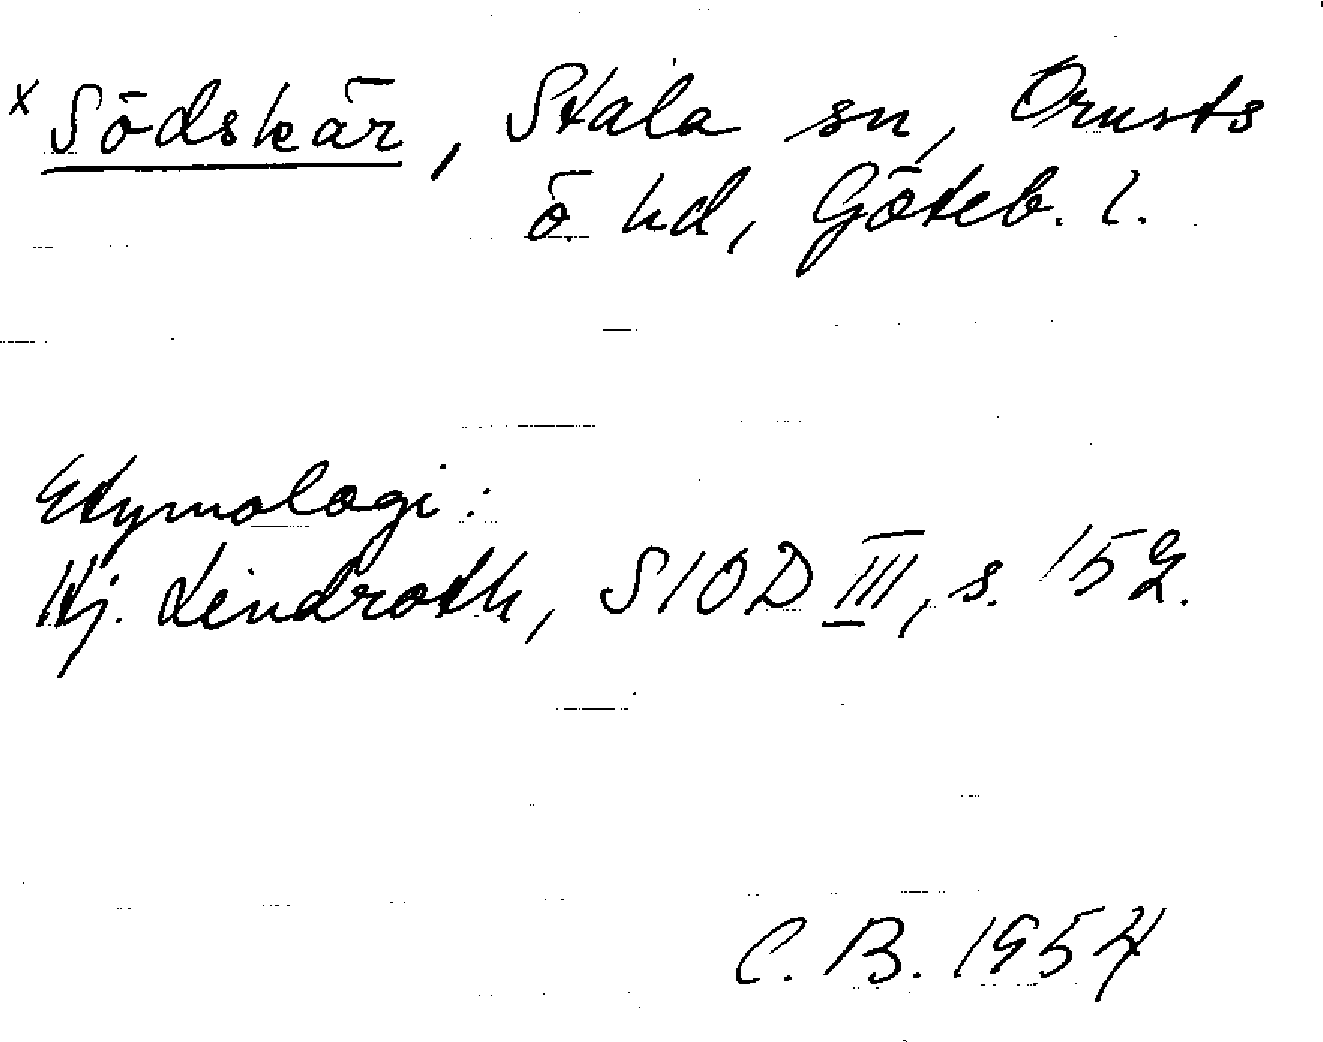 x Södskär, Stala sn, Orusts
ö. hd, Göteb. l.
Etymologi:
Hj. Lindroth, SIOD III, s. 152.
C. B. 1954